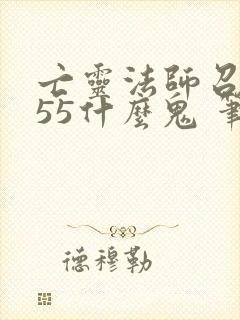 亡靈法師召
55什麼鬼 筆
德穆勒